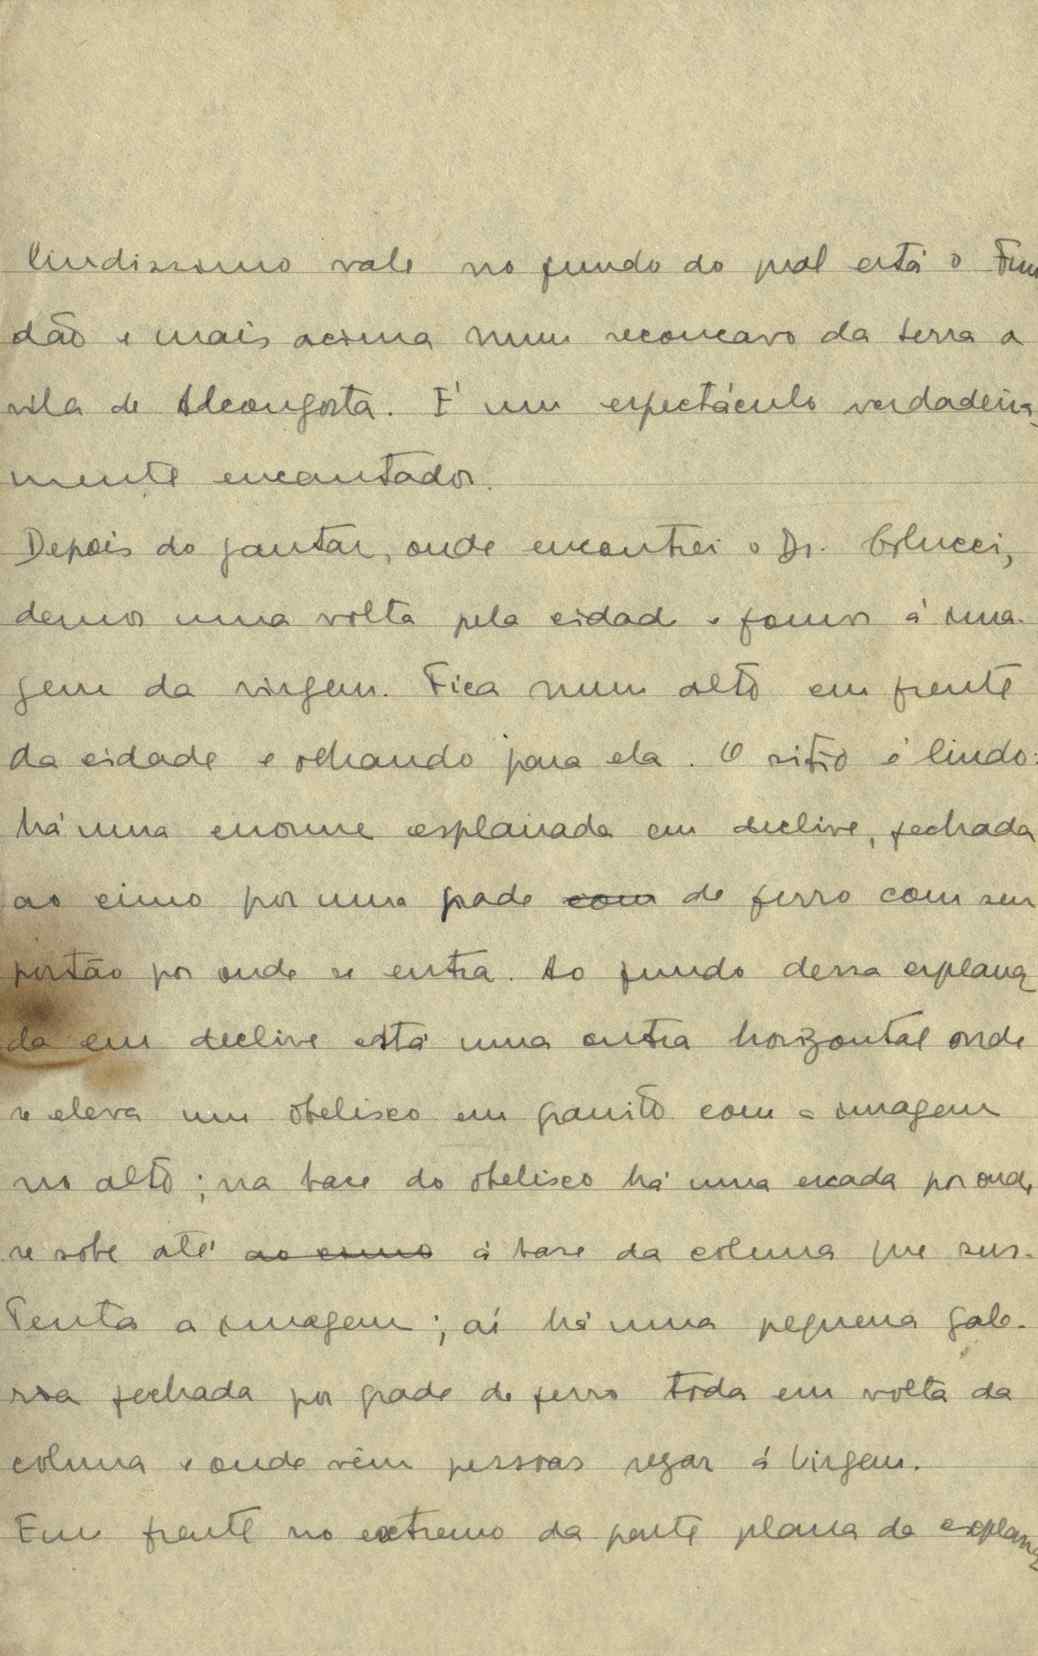 lindissimo vale no fundo do qual está o Fun
dão e mais acima num reconcavo da serra a
vila de Alcongosta. É um espectáculo verdadeira
mente encantador.
Depois do jantar, onde encontrei o Dr. Colucci,
demos uma volta pela cidade e fomos á ima-
gem da virgem. Fica num alto em frente
da cidade e olhando para ela. O sitio é lindo:
há uma enorme esplanada em declive, fechada
ao cimo por uma grade com de ferro com seu
portão por onde se entra. Ao fundo dessa esplana
da em declive está uma outra horizontal onde
se eleva um obelisco em granito com a imagem
no alto; na base do obelisco há uma escada por onde
se sobe até ao cimo á base da coluna que sus-
tenta a imagem; aí há uma pequena gale-
ria fechada por grade de ferro toda em volta da
coluna e onde vêm pessoas rezar á Virgem.
Em frente no extremo da parte plana da esplana